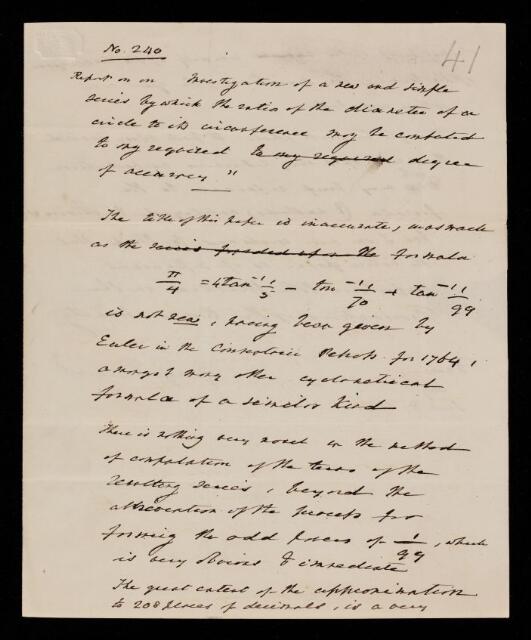 No. 240
41
Report on an Investigation of a new and simple
series by which the ratio of the diameter of a
circle to its circumference may be computed
to any required to any required degree
of accuracy"
The title of this Paper is inaccurate, inasmuch
as the series founded upon the formula
π/4 = 4tan⁻¹ 1/5 − tan⁻¹ 1/70 + tan⁻¹ 1/99
is not new, having been given by
Euler in the Petrop. for 1764,
amongst many other cyclometrical
formulæ of a similar kind
There is nothing very novel in the method
of computation of the terms of the
resulting series, beyond the
abbreviation of the process for
forming the odd powers of 1/99, which
is very obvious & immediate
The great extent of the approximation
to 208 places of decimals, is a very